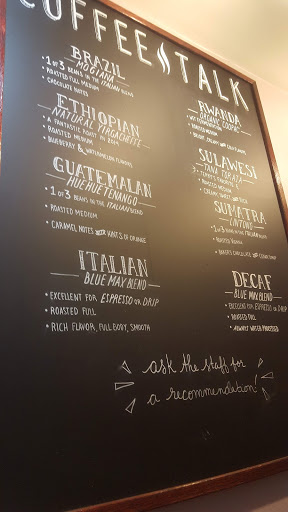 COFFEE TALK
BRAZIL
MOGIANA
• 1 OF 3 BEANS IN THE ITALIAN BLEND
• ROASTED FULL MEDIUM
• CHOCOLATE NOTES
ETHIOPIAN
NATURAL YIRGACHEFFE
• A FANTASTIC ROAST IN 2014
• ROASTED MEDIUM
• BLUEBERRY & WATERMELON FLAVORS
GUATEMALAN
HUEHUETENANGO
• 1 OF 3 BEANS IN THE ITALIAN BLEND
• ROASTED MEDIUM
• CARAMEL NOTES WITH HINTS OF ORANGE
ITALIAN
BLUE MAX BLEND
• EXCELLENT FOR ESPRESSO OR DRIP
• ROASTED FULL
• RICH FLAVOR, FULL BODY, SMOOTH
RWANDA
ORGANIC COOPAC
• ROASTED MEDIUM
SULAWESI
TANA TORAJA
• ROASTED MEDIUM
• CREAMY SWEET AND RICH
SUMATRA
LINTONG
• 1 OF 3 BEANS IN THE ITALIAN BLEND
• BAKER'S CHOCOLATE AND CEDAR
DECAF
BLUE MAX BLEND
• EXCELLENT FOR ESPRESSO OR DRIP
• ROASTED FULL
• WATER PROCESSED
ask the staff for
a recommendation!